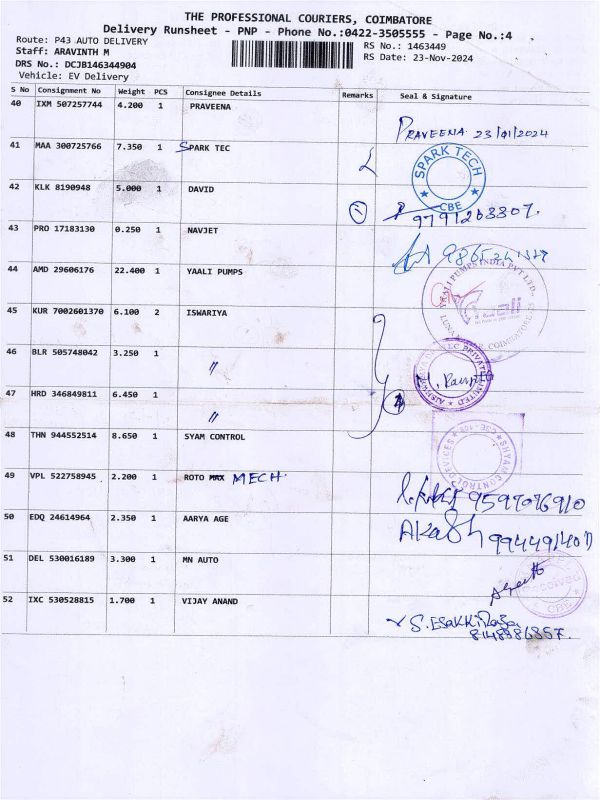 THE PROFESSIONAL COURIERS, COIMBATORE
Delivery Runsheet - PNP - Phone No.:0422-3505555 - Page No.:4
Route: P43 AUTO DELIVERY RS No.: 1463449
Staff: ARAVINTH M RS Date: 23-Nov-2024
DRS No.: DCJB146344904
Vehicle: EV Delivery
S No Consignment No Weight PCS Consignee Details Remarks Seal & Signature
40 IXM 507257744 4.200 1 PRAVEENA
PRAVEENA 23/01/2024
41 MAA 300725766 7.350 1 SPARK TEC
SPARK TECH CBE
42 KLK 8190948 5.000 1 DAVID
9791203307.
43 PRO 17183130 0.250 1 NAVJET
44 AMD 29606176 22.400 1 YAALI PUMPS
YAALI PUMPS INDIA PVT LTD., COIMBATORE
45 KUR 7002601370 6.100 2 ISWARIYA
46 BLR 505748042 3.250 1 〃
PRIVATE LIMITED
47 HRD 346849811 6.450 1 〃
48 THN 944552514 8.650 1 SYAM CONTROL
SHYAM CONTROL DEVICES CBE-108
49 VPL 522758945 2.200 1 ROTO MAX MECH.
9597076910
50 EDQ 24614964 2.350 1 AARYA AGE
Akash
51 DEL 530016189 3.300 1 MN AUTO
CBE
52 IXC 530528815 1.700 1 VIJAY ANAND
S. Esakki Raja
8148986857.